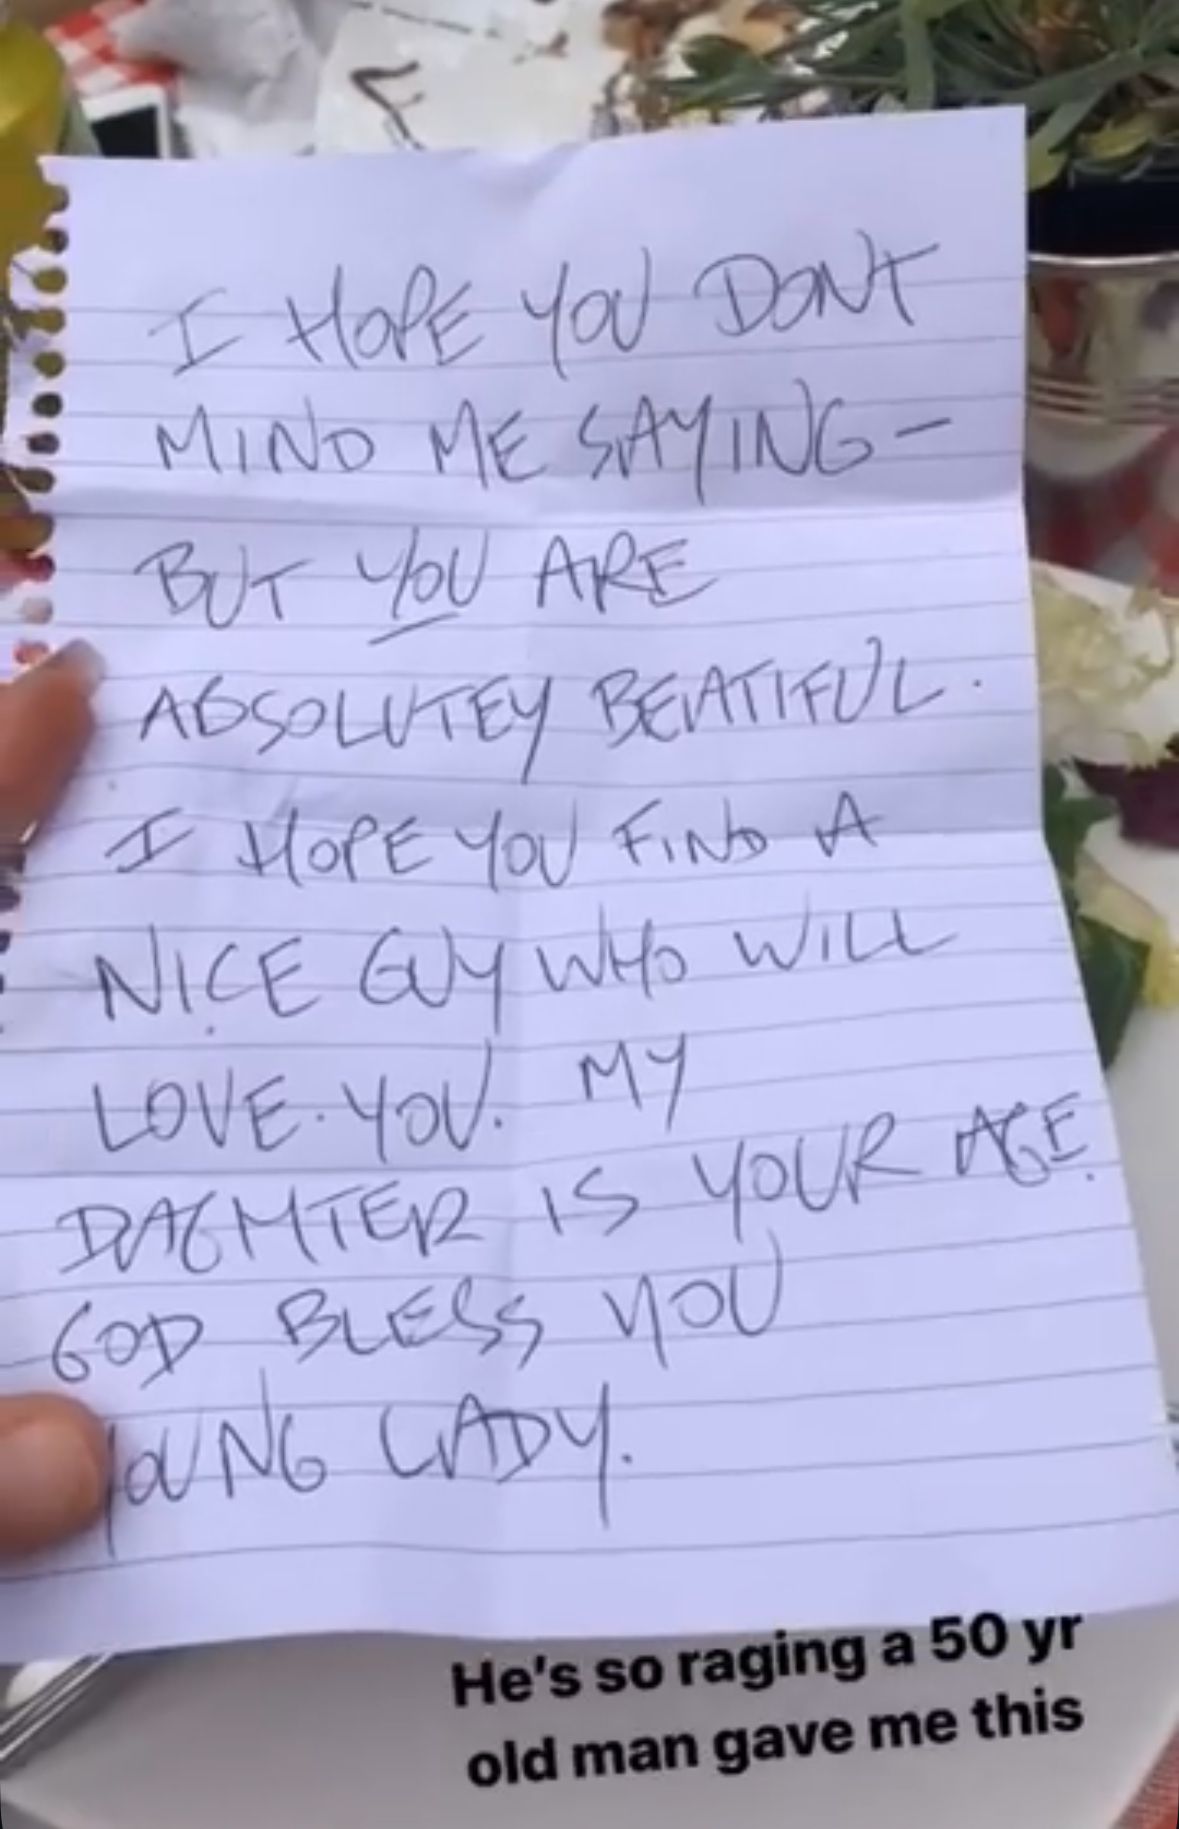 I HOPE YOU DONT
MIND ME SAYING -
BUT YOU ARE
ABSOLUTEY BEATIFUL.
I HOPE YOU FIND A
NICE GUY WHO WILL
LOVE. YOU. MY
DAGHTER IS YOUR AGE.
GOD BLESS YOU
YOUNG LADY.
He's so raging a 50 yr
old man gave me this